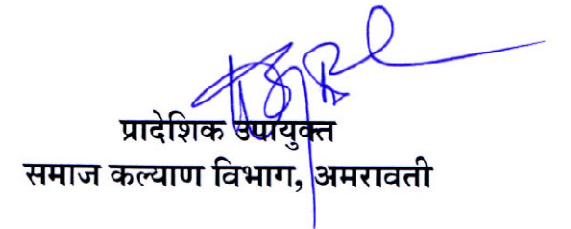 प्रादेशिक उपायुक्त
समाज कल्याण विभाग, अमरावती